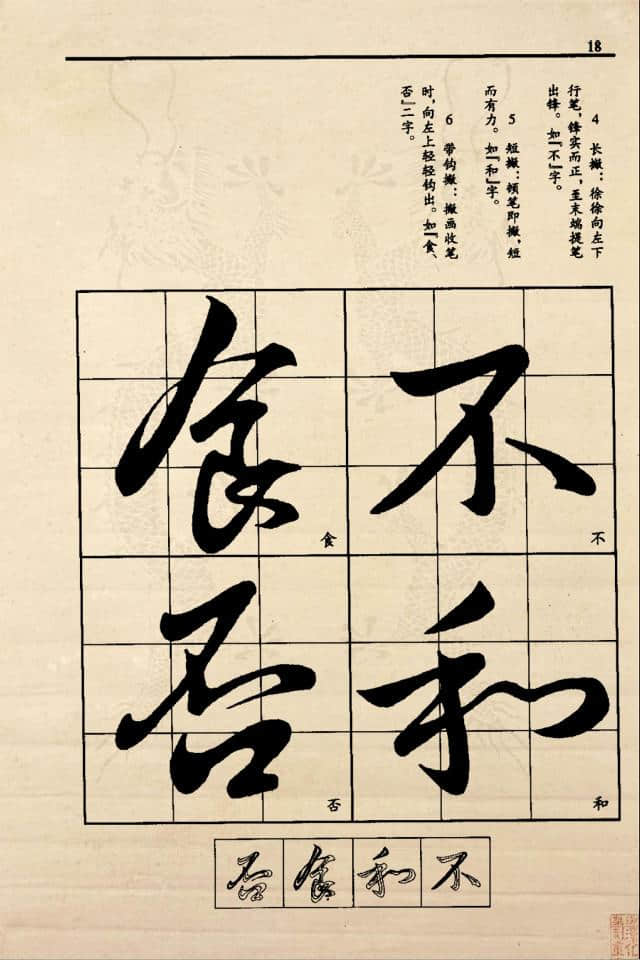 18
4 长撇：徐徐向左下
行笔，锋实而正，至末端提笔
出锋。如『不』字。
5 短撇：顿笔即撇，短
而有力。如『和』字。
6 带钩撇：撇画收笔
时，向左上轻轻钩出。如『食、
否』二字。
不
不
和
和
食
食
否
否
不
和
食
否